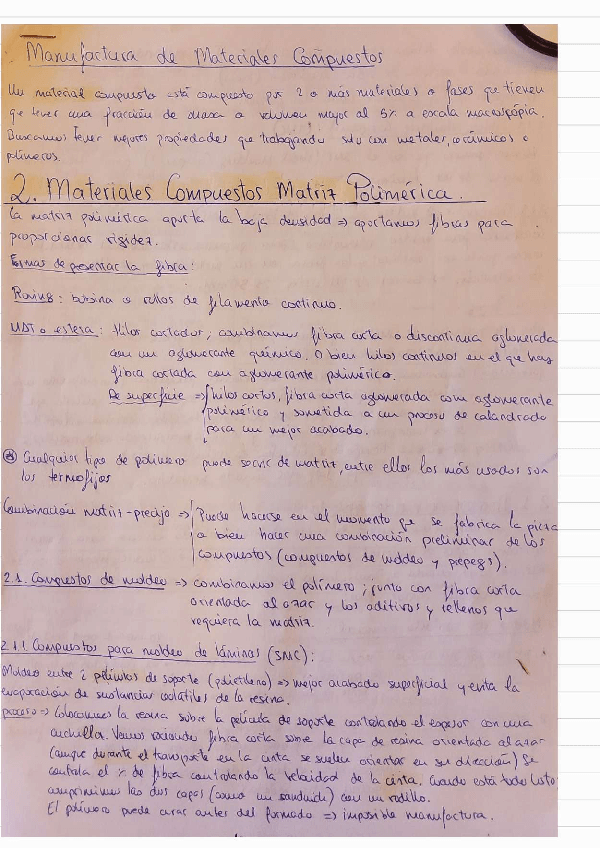 Manufactura de Materiales Compuestos
Un material compuesto está compuesto por 2 o más materiales o fases que tienen
que tener una fracción de masa o volumen mayor al 5% a escala macroscópica.
Buscamos tener mejores propiedades que trabajando solo con metales, cerámicos o
polímeros.
2. Materiales Compuestos Matriz Polimérica.
La matriz polimérica aporta la baja densidad ⇒ aportamos fibras para
proporcionar rigidez.
Formas de presentar la fibra:
Roving: bobina o rollos de filamento continuo.
o estera: Hilos cortados, combinamos fibra corta o discontinua aglomerada
con un aglomerante químico. O bien hilos continuos en el que hay
fibra cortada con aglomerante polimérico.
De superficie ⇒ hilos cortos, fibra corta aglomerada con aglomerante
polimérico y sometida a un proceso de calandrado
para un mejor acabado.
Cualquier tipo de polímero puede servir de matriz, entre ellos los más usados son
los termofijos
Combinación matriz-precijo ⇒ Puede hacerse en el momento que se fabrica la pieza
o bien hacer una combinación preliminar de los
compuestos (compuestos de moldeo y prepegs).
2.1. Compuestos de moldeo ⇒ combinamos el polímero, junto con fibra corta
orientada al azar y los aditivos y rellenos que
requiera la matriz.
2.1.1 Compuestos para moldeo de láminas (SMC):
Moldeo entre 2 películas de soporte (polietileno) ⇒ mejor acabado superficial y evita la
evaporación de sustancias volátiles de la resina.
proceso ⇒ Colocamos la resina sobre la película de soporte controlando el espesor con una
cuchilla. Vamos rociando fibra corta sobre la capa de resina orientada al azar
(aunque durante el transporte en la cinta se suelen orientar en su dirección) Se
controla el % de fibra controlando la velocidad de la cinta. Cuando está todo listo
comprimimos las dos capas (como un sandwich) con un rodillo.
El polímero puede curar antes del formado ⇒ imposible manufactura.